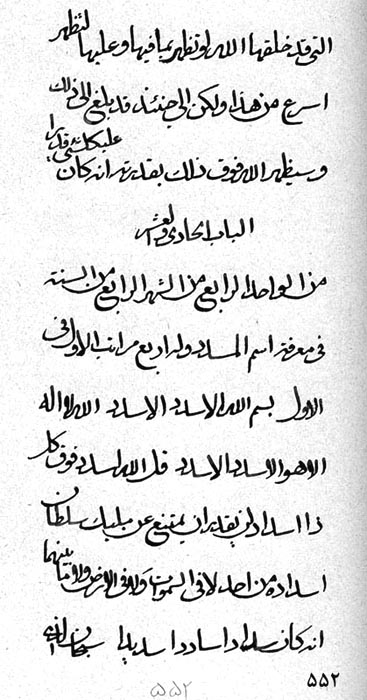 التي قد خلقها الله لو تظهر بما فيها وعليها لتظهر
اسرع من هذا ولكن الى حينئذ قد بلغ الى ذلك
وسيظهر الله فوق ذلك بقدرته انه كان على كل شيء قديرا
الباب الحادي والعشر
من الواحد الرابع من الشهر الرابع من السنة
في معرفة اسم المسدد وله اربع مراتب الاول في
الاول بسم الله الاسدد الاسدد الله لا اله
الا هو الاسدد الاسدد قل الله اسدد فوق كل
ذا اسداد لن يقدر ان يمتنع عن مليك سلطان
اسداده من احد لا في السموات ولا في الارض ولا ما بينهما
انه كان سدادا ساددا سديدا سبحان الذي
٥٥٢
٥٥٢